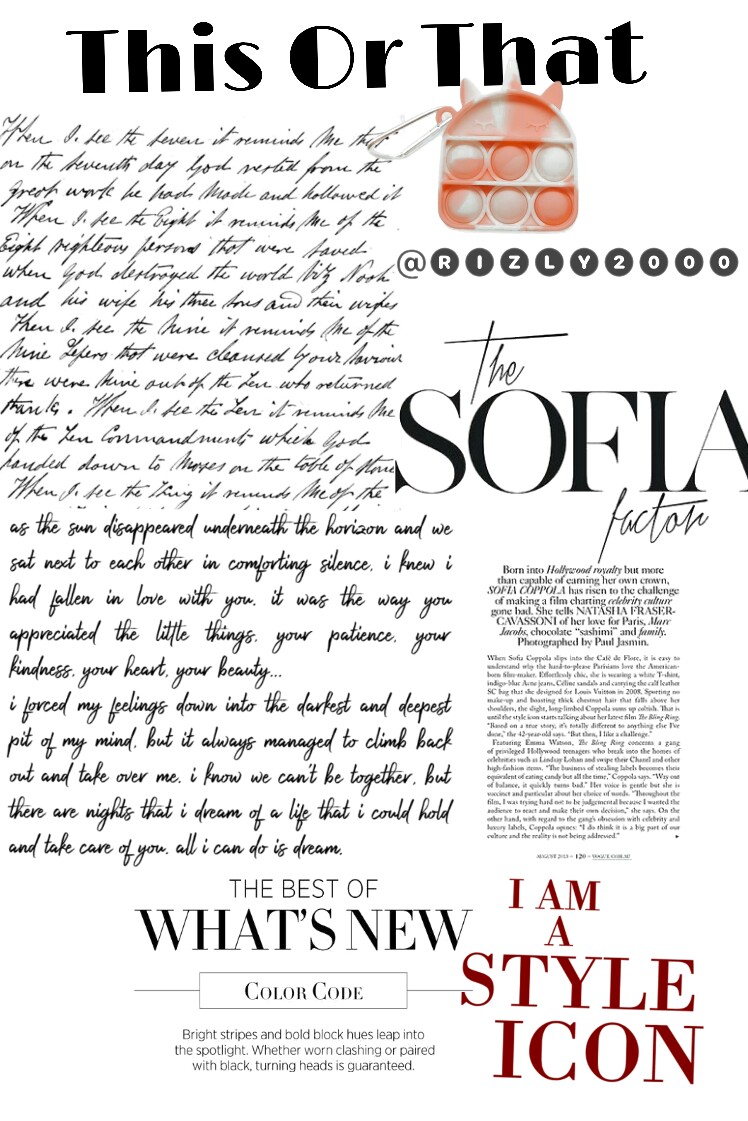 This Or That
When I. see the seven it reminds Me that
on the seventh day God rested from the
great work he had Made and hollowed it
When I. see the Eight it reminds Me of the
Eight righteous persons that were saved
when God destroyed the world viz Noah
and his wife his three sons and their wifes
When I. see the Nine it reminds Me of the
Nine Lepers that were cleansed by our Saviour
there were Nine out of the Ten who returned
thanks. When I. see the Ten it reminds Me
of the Ten Commandments which God
handed down to Moses on the table of stone
When I. see the King it reminds Me of the
@RIZLY2000
The
SOFIA
factor
Born into Hollywood royalty but more
than capable of earning her own crown,
SOFIA COPPOLA has risen to the challenge
of making a film charting celebrity culture
gone bad. She tells NATASHA FRASER-
CAVASSONI of her love for Paris, Marc
Jacobs, chocolate “sashimi” and family.
Photographed by Paul Jasmin.
When Sofia Coppola slips into the Café de Flore, it is easy to
understand why the hard-to-please Parisians love the American-
born film-maker. Effortlessly chic, she is wearing a white T-shirt,
indigo-blue Acne jeans, Céline sandals and carrying the calf leather
SC bag that she designed for Louis Vuitton in 2008. Sporting no
make-up and boasting thick chestnut hair that falls above her
shoulders, the slight, long-limbed Coppola sums up coltish. That is
until the style icon starts talking about her latest film The Bling Ring.
“Based on a true story, it’s totally different to anything else I’ve
done,” the 42-year-old says. “But then, I like a challenge.”
Featuring Emma Watson, The Bling Ring concerns a gang
of privileged Hollywood teenagers who break into the homes of
celebrities such as Lindsay Lohan and swipe their Chanel and other
high-fashion items. “The business of stealing labels becomes their
equivalent of eating candy but all the time,” Coppola says. “Way out
of balance, it quickly turns bad.” Her voice is gentle but she is
succinct and particular about her choice of words. “Throughout the
film, I was trying hard not to be judgemental because I wanted the
audience to react and make their own decision,” she says. On the
other hand, with regard to the gang’s obsession with celebrity and
luxury labels, Coppola opines: “I do think it is a big part of our
culture and the reality is not being addressed.”
AUGUST 2013 – 120 – VOGUE.COM.AU
as the sun disappeared underneath the horizon and we
sat next to each other in comforting silence, i knew i
had fallen in love with you. it was the way you
appreciated the little things, your patience, your
kindness, your heart, your beauty...
i forced my feelings down into the darkest and deepest
pit of my mind, but it always managed to climb back
out and take over me. i know we can't be together, but
there are nights that i dream of a life that i could hold
and take care of you. all i can do is dream.
THE BEST OF
WHAT'S NEW
COLOR CODE
Bright stripes and bold block hues leap into
the spotlight. Whether worn clashing or paired
with black, turning heads is guaranteed.
I AM
A
STYLE
ICON